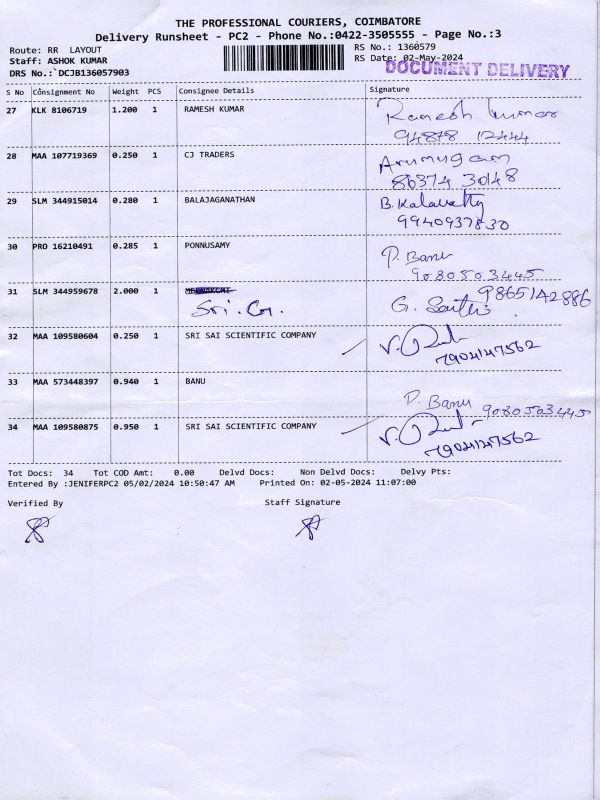 THE PROFESSIONAL COURIERS, COIMBATORE
Delivery Runsheet - PC2 - Phone No.:0422-3505555 - Page No.:3
Route: RR LAYOUT
RS No.: 1360579
Staff: ASHOK KUMAR
RS Date: 02-May-2024
DRS No.:`DCJB136057903
DOCUMENT DELIVERY
S No Consignment No Weight PCS Consignee Details Signature
27 KLK 8106719 1.200 1 RAMESH KUMAR Ramesh kumar
94878 12444
28 MAA 107719369 0.250 1 CJ TRADERS Arumugam
86374 30148
29 SLM 344915014 0.280 1 BALAJAGANATHAN B.
9940937830
30 PRO 16210491 0.285 1 PONNUSAMY P. Banu
9080503445
31 SLM 344959678 2.000 1 MEENAKCHI 9865142886
Sri. G.
32 MAA 109580604 0.250 1 SRI SAI SCIENTIFIC COMPANY V.
7904147562
33 MAA 573448397 0.940 1 BANU P. Banu 9080503445
34 MAA 109580875 0.950 1 SRI SAI SCIENTIFIC COMPANY V.
7904147562
Tot Docs: 34 Tot COD Amt: 0.00 Delvd Docs: Non Delvd Docs: Delvy Pts:
Entered By :JENIFERPC2 05/02/2024 10:50:47 AM Printed On: 02-05-2024 11:07:00
Verified By Staff Signature